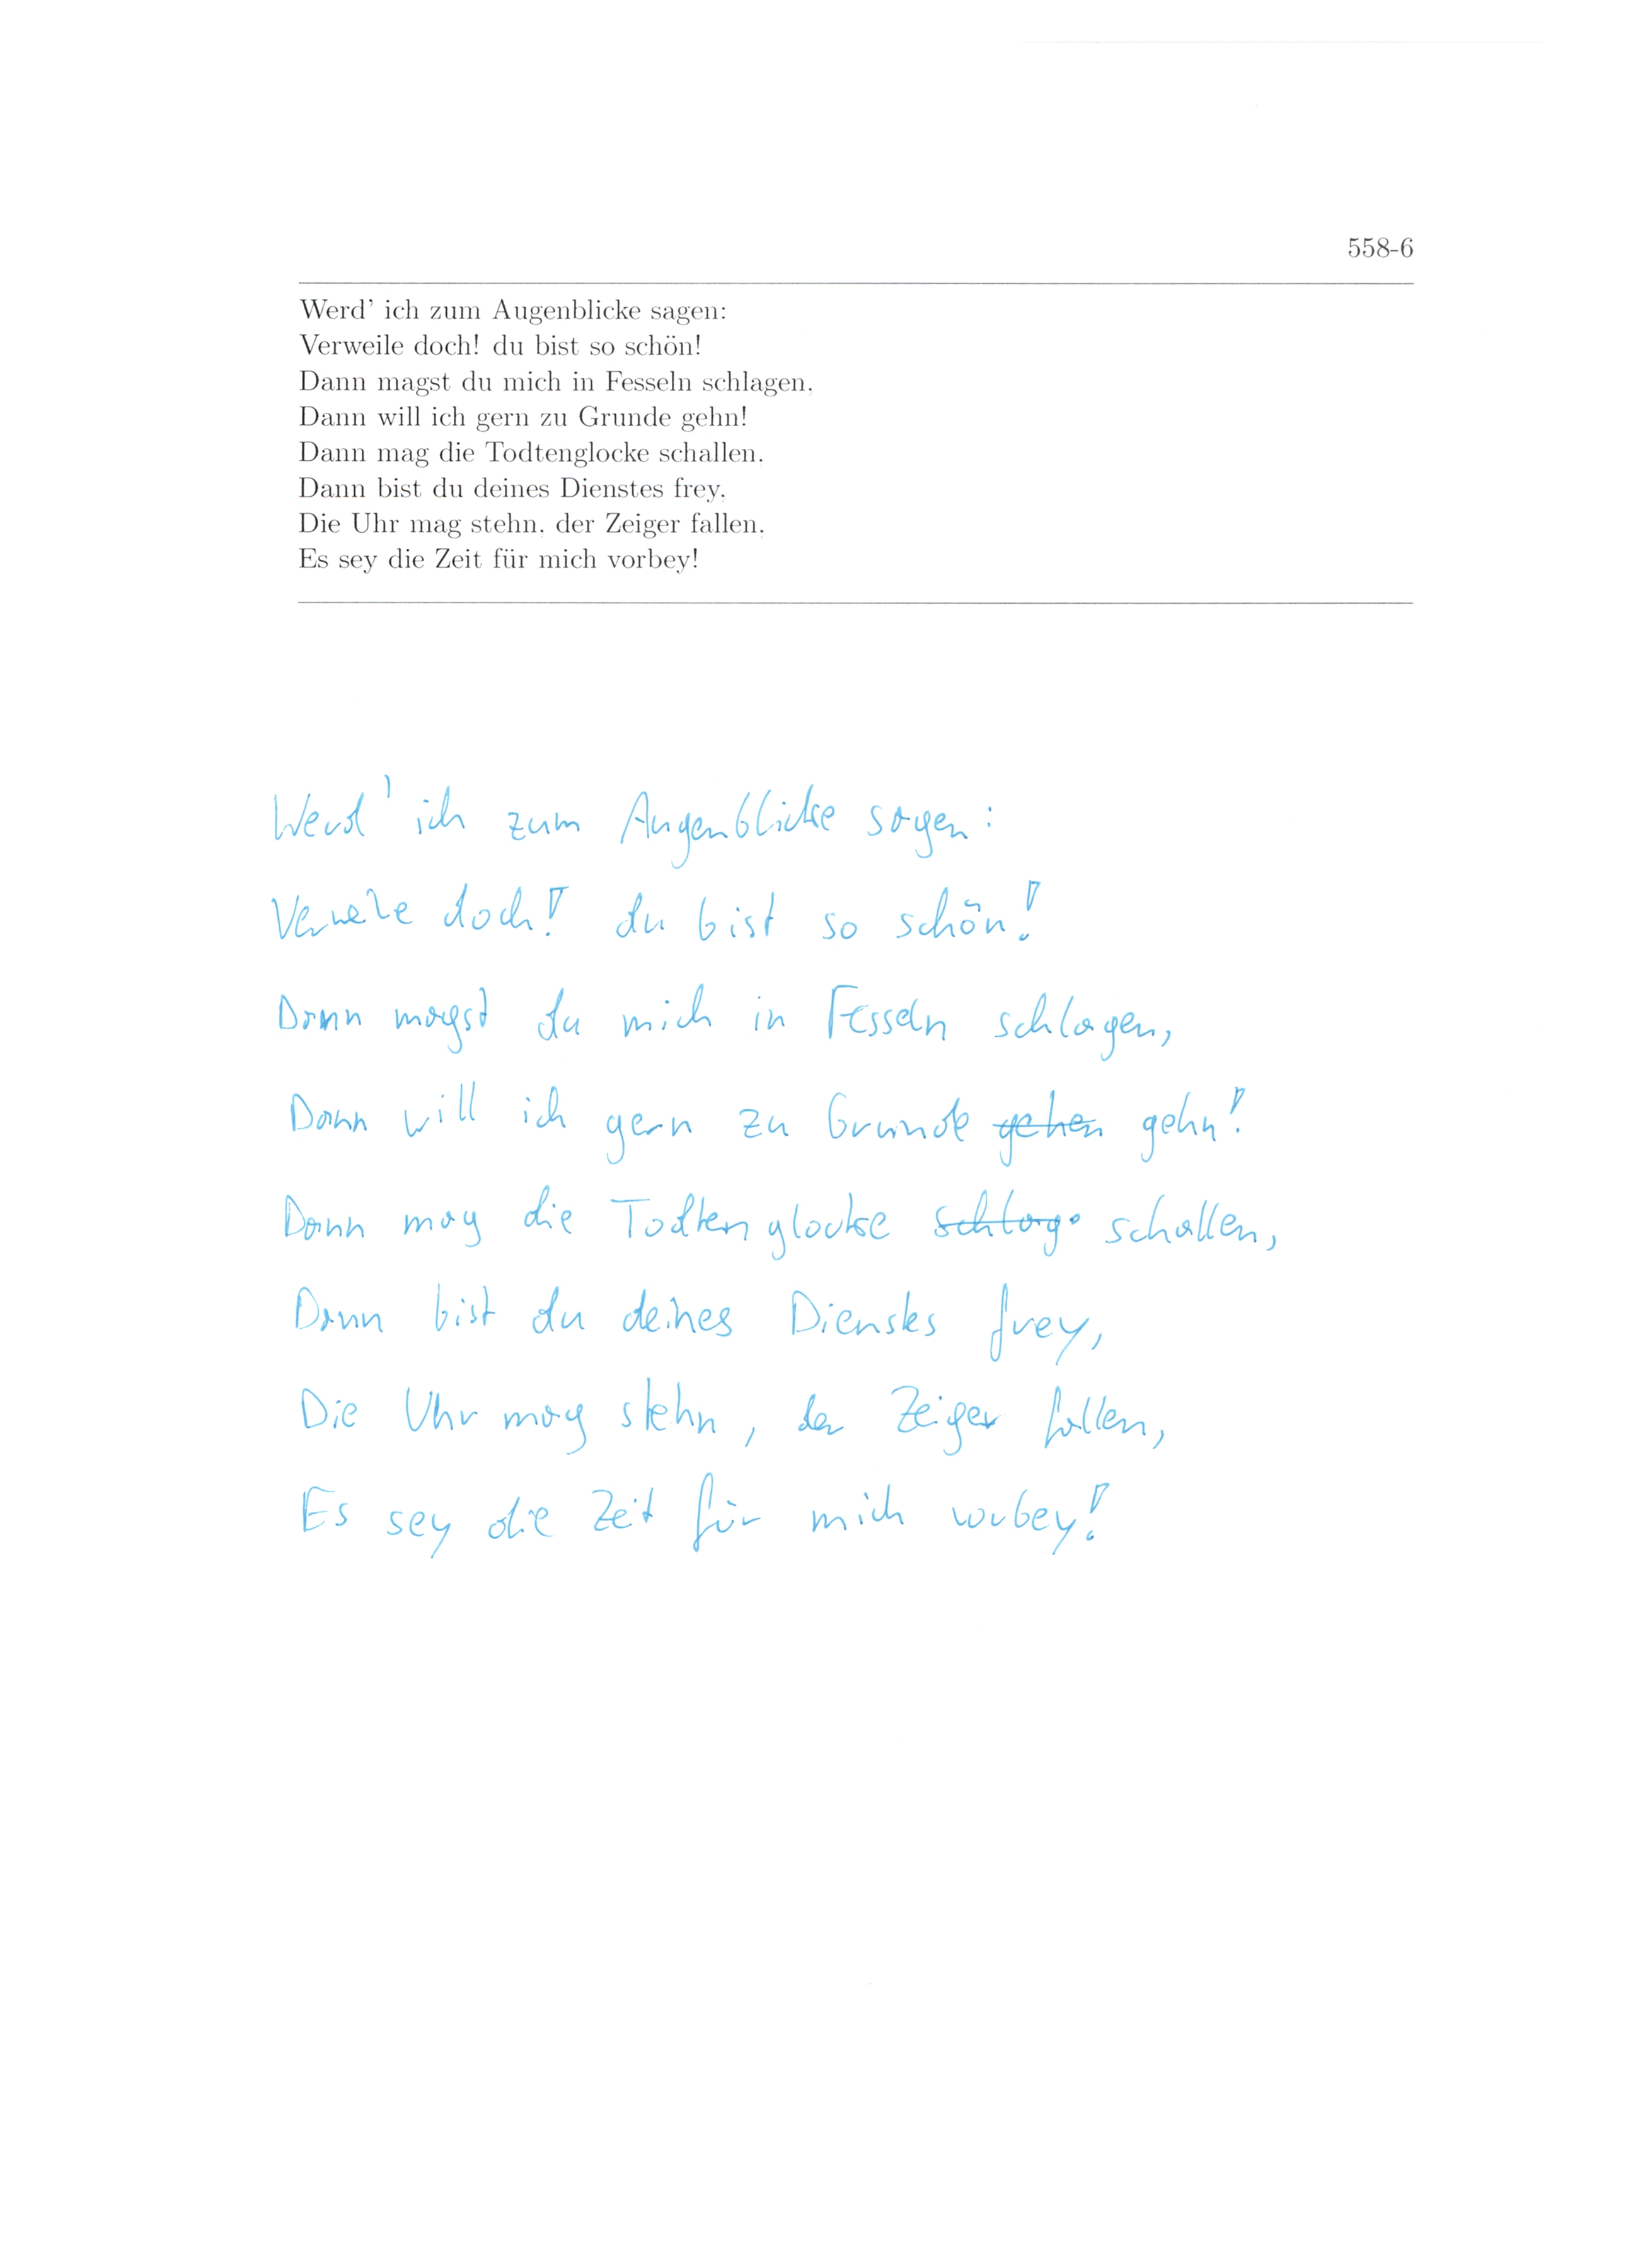 558-6
Werd' ich zum Augenblicke sagen:
Verweile doch! du bist so schön!
Dann magst du mich in Fesseln schlagen,
Dann will ich gern zu Grunde gehn!
Dann mag die Todtenglocke schallen,
Dann bist du deines Dienstes frey,
Die Uhr mag stehn, der Zeiger fallen,
Es sey die Zeit für mich vorbey!
Werd' ich zum Augenblicke sagen:
Verweile doch! du bist so schön!
Dann magst du mich in Fesseln schlagen,
Dann will ich gern zu Grunde gehen gehn!
Dann mag die Todtenglocke schlag schallen,
Dann bist du deines Dienstes frey,
Die Uhr mag stehn, der Zeiger fallen,
Es sey die Zeit für mich vorbey!